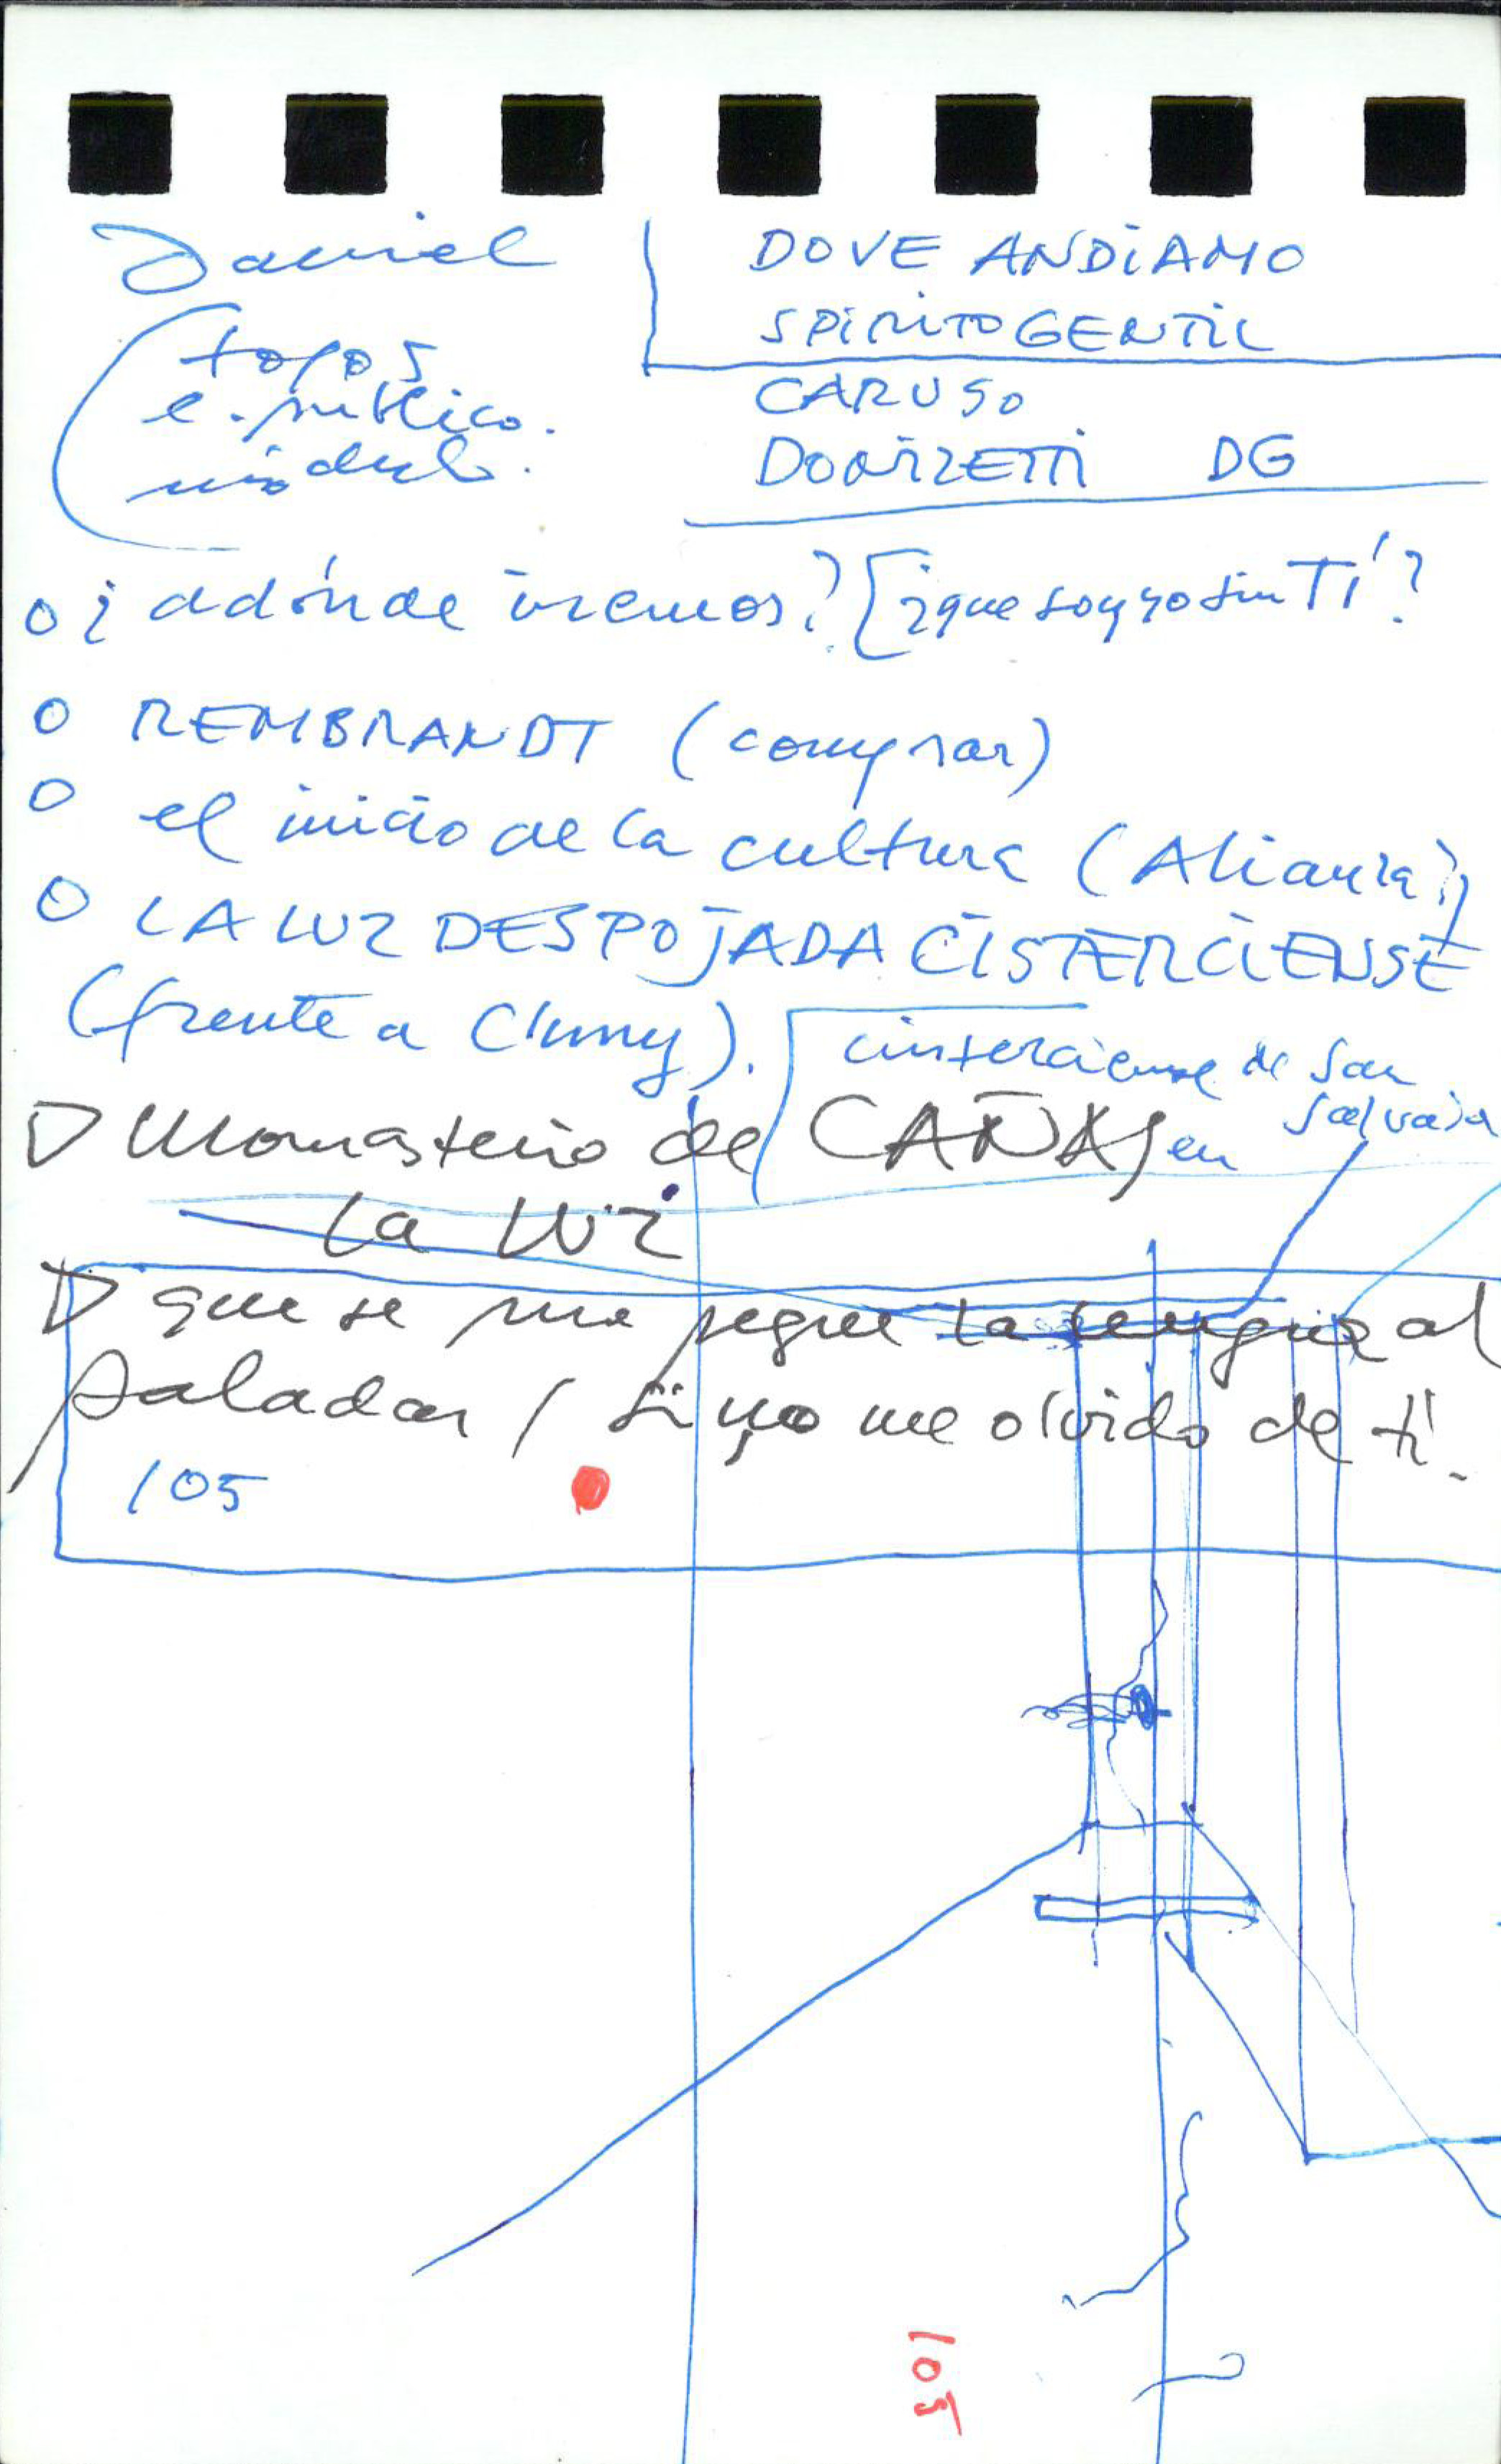 Daniel
topos
e. público.
módulo.
DOVE ANDIAMO
SPIRITO GENTIL
CARUSO
DONIZETTI DG
o ¿adónde iremos? [¿que soy yo sin TÍ?
o REMBRANDT (comprar)
o el inicio de la cultura (Alianza?)
o LA LUZ DESPOJADA CISTERCIENSE
(frente a Cluny).
cisterciense de San
Salvador
Monasterio de CAÑAS en
la luz
que se me pegue la lengua al
paladar / si yo me olvido de ti.
105
105